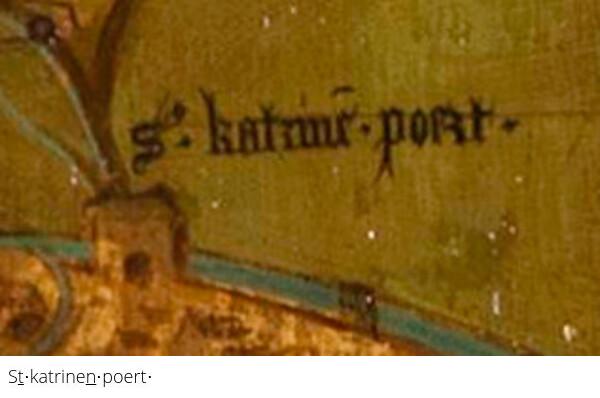 sᵗ· katrinē· poert·
St·katrinen·poert·